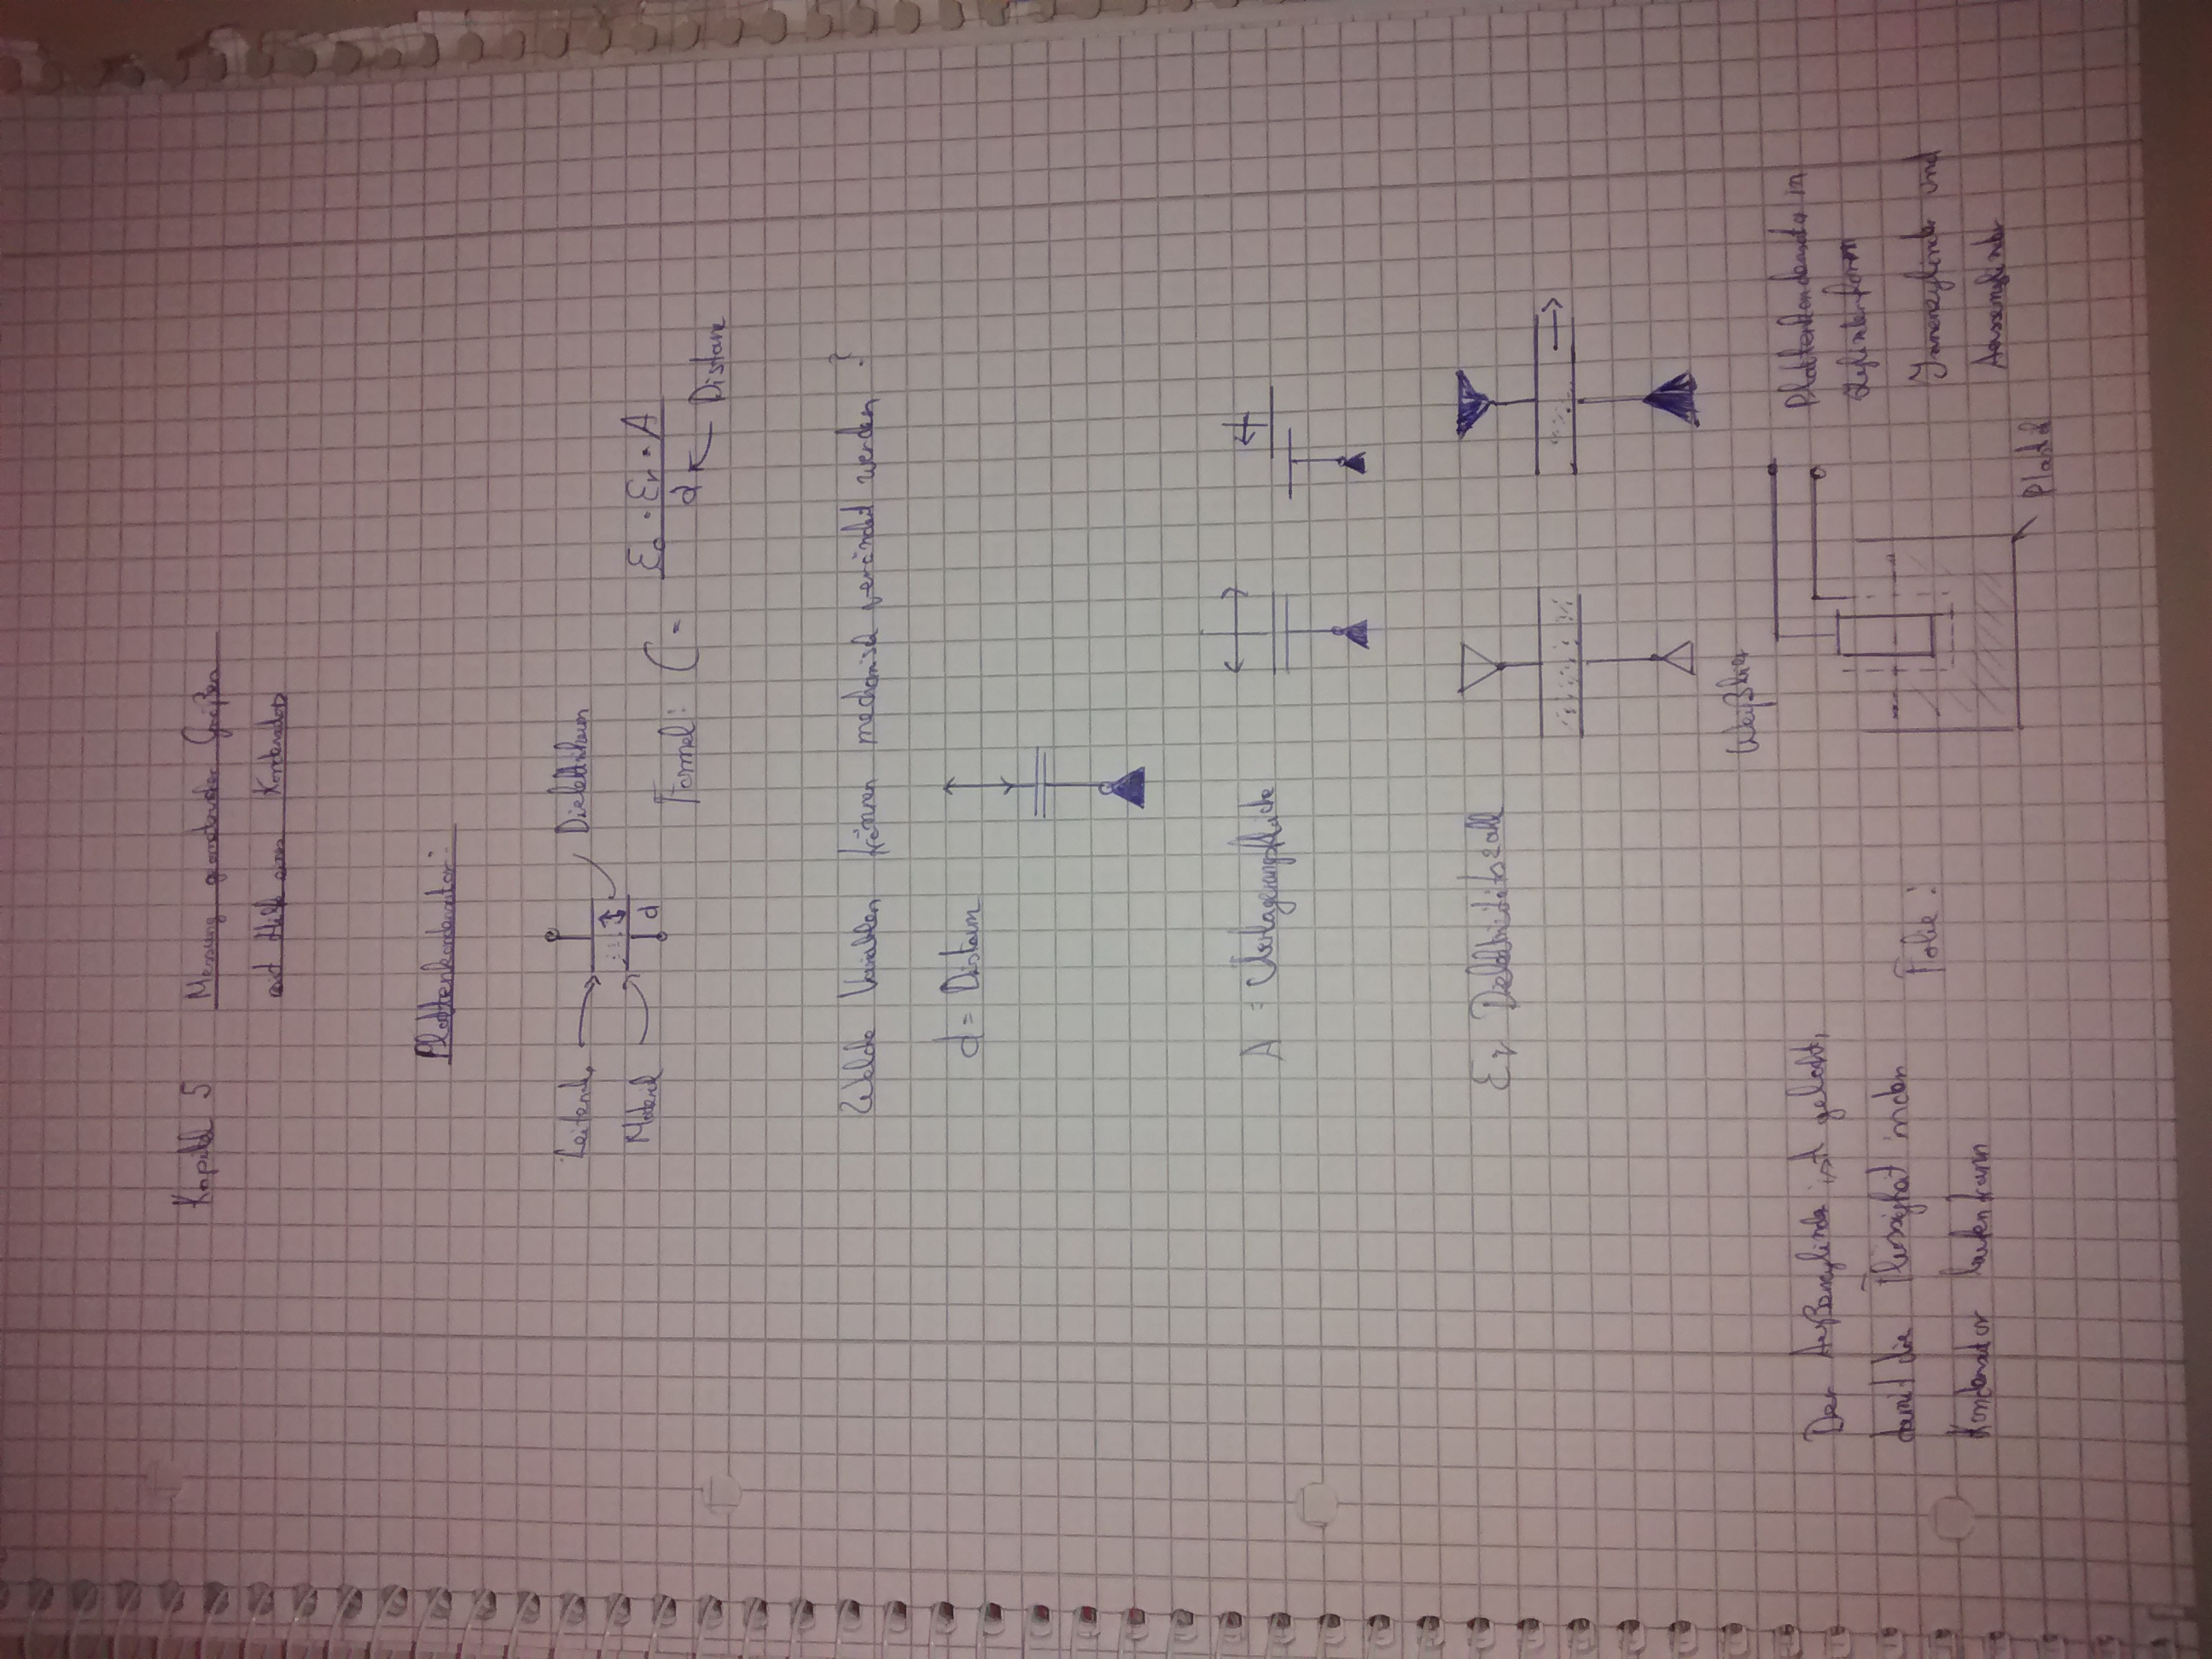 Kapitel 5 Messung geometrischer Größen
mit Hilfe eines Kondensators
Plattenkondensator:
Leitendes
Material
Dielektrikum
d
Formel: C = ε₀ · εr · A / d ← Distanz
Welche Variablen können mechanisch verändert werden?
d = Distanz
A = Überlagerungsfläche
εr Dielektrizitätszahl
Der Außenzylinder ist gelocht,
damit die Flüssigkeit in den
Kondensator laufen kann
Folie:
Plattenkondensator in
Zylinderform
Innenzylinder und
Aussenzylinder